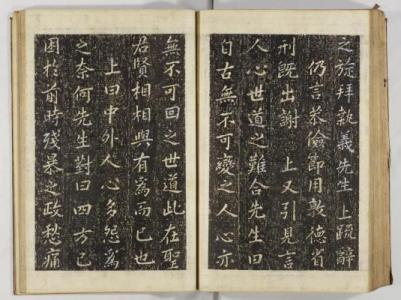 之旋拜執義先生上疏辭
仍言恭儉節用敦德省
刑既出謝 上又引見言
人心世道之難合先生曰
自古無不可變之人心亦
無不可回之世道此在聖
君賢相相與有為而已也
上曰中外人心多怨為
之奈何先生對曰四方已
困於前時殘暴之政愁痛